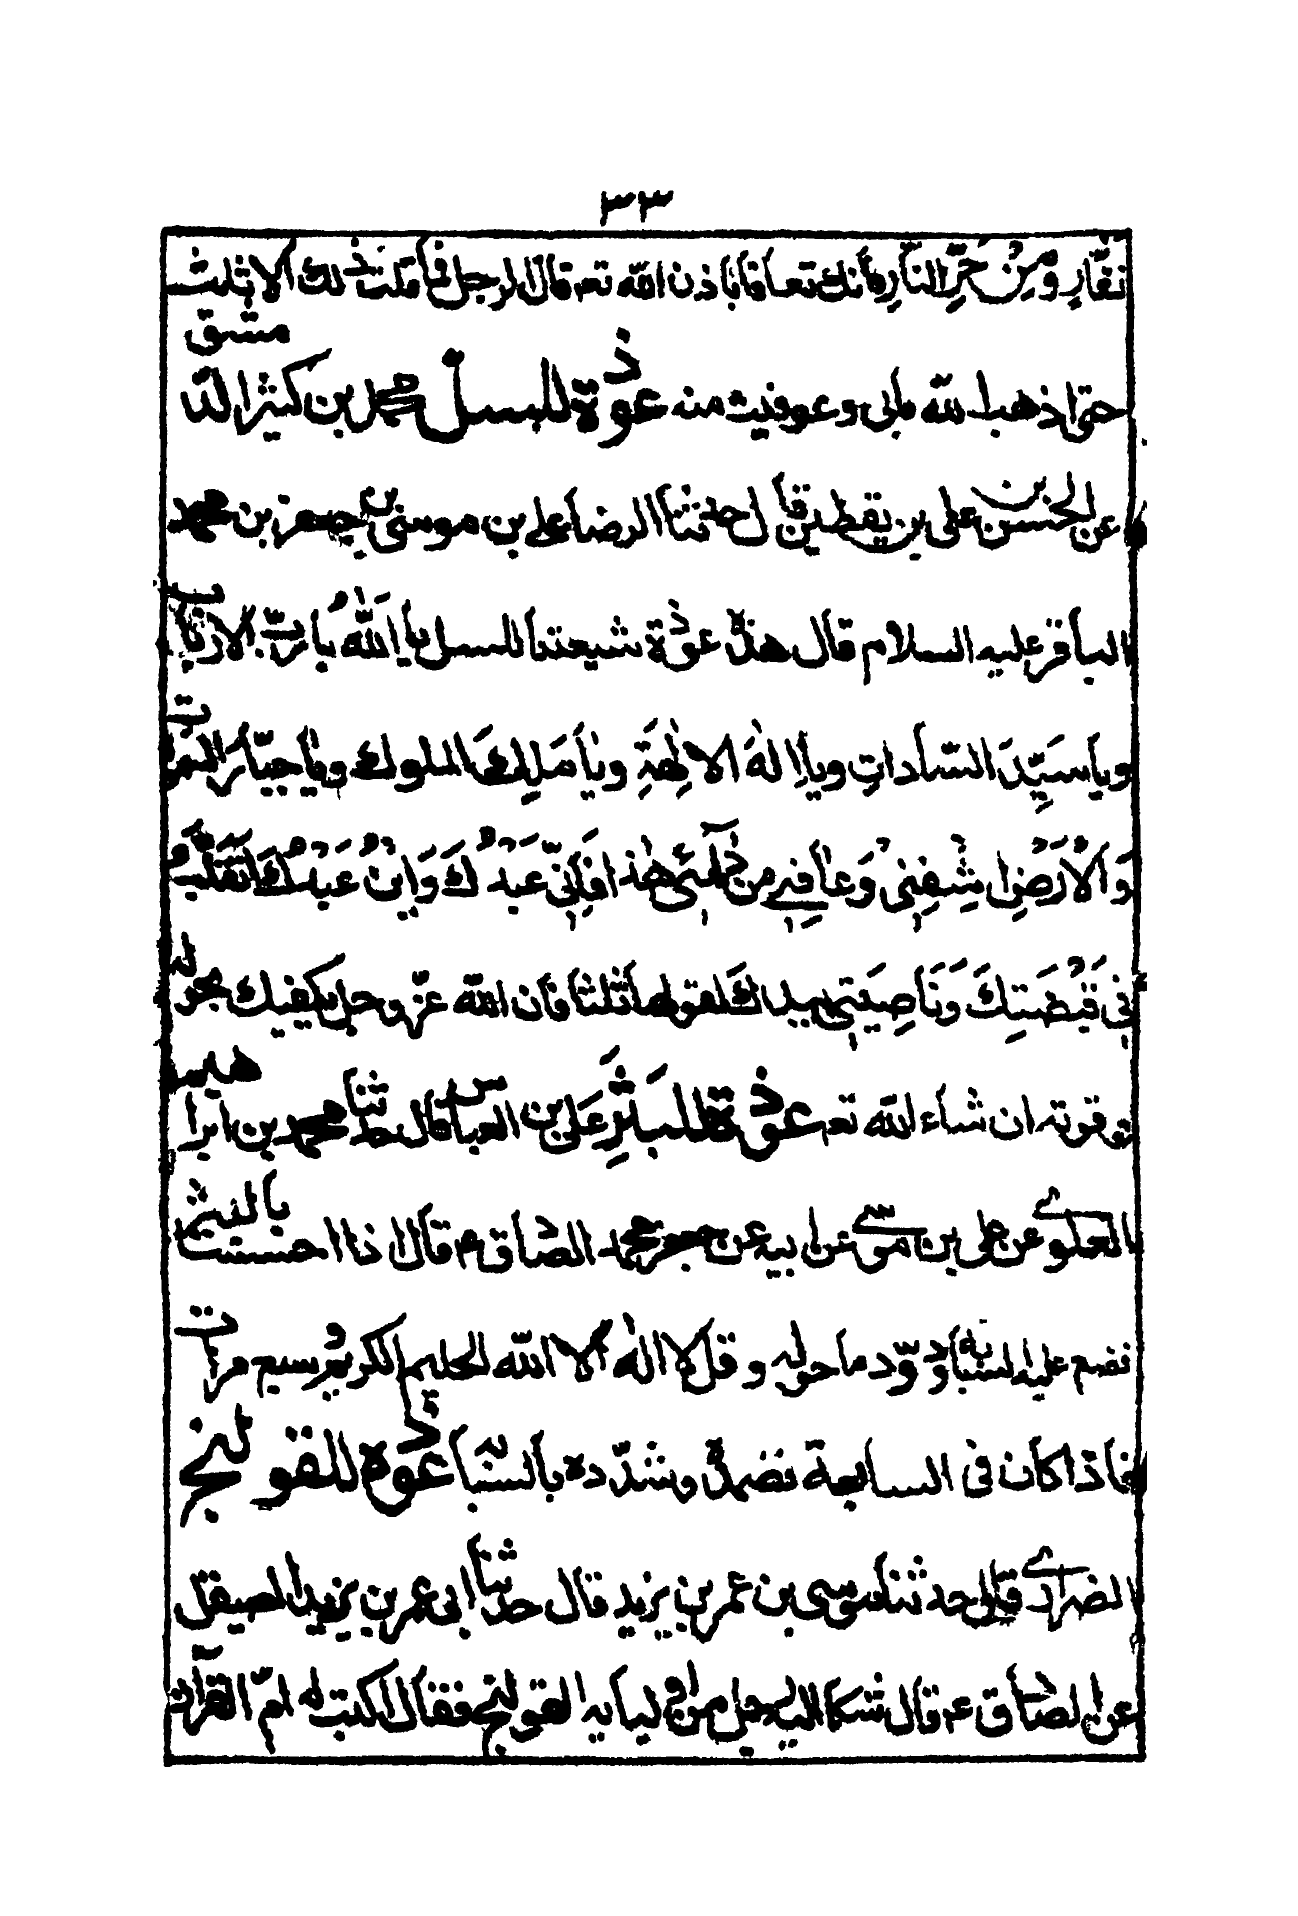 ٣٣
نفّار ومن حرّ النار فانك تعافا باذن الله تعم قال الرجل فما قلت ذلك الا ثلث
حتى اذهب الله ما بى وعوفيت منه عوذة للسل محمد بن كثير الدمشقى
عن الحسن بن على بن يقطين قال حدثنا الرضا على بن موسى بن جعفر بن محمد
الباقر عليه السلام قال هذه عوذة شيعتنا للسل يا اَللّٰه يُا ربّ الارباب
ويا سيّدَ السّادات ويا اِلٰهَ الاٰلِهَةِ ويٰا مَلِكَ الملوك ويا جبّارَ السّمٰوات
وَ الْاَرْضِ اشْفِنِى وَعٰافِنِى مِنْ دٰآئى هٰذا فَاِنّى عَبْدُكَ وَابْنُ عَبْدِكَ اَتَقَلَّبُ
فى قَبْضَتِكَ وَنَاصِيَتى بيدك تقولها ثلثا فان الله عزّ وجل يكفيك بحوله
وقوته ان شاء الله تعم عوذة للبثر على بن العباس قال حدثنا محمد بن ابراهيم
العلوى عن على بن موسى عن ابيه عن جعفر بن محمد الصادق م قال اذا احسست بالبثر
فضع عليه السبابة ودوّر ما حوله و قل لا اله الا الله الحليم الكريم سبع مرات
فاذا كان فى السابعة فضمده وشدّده بالسبابة عوذة للقولنج
الضرارى قال حدثنا موسى بن عمر بن يزيد قال حدثنا ابى عمر بن يزيد الصيقل
عن الصادق ع م قال شكا اليه رجل من اوليائه القولنج فقال اكتب له امّ القرآن